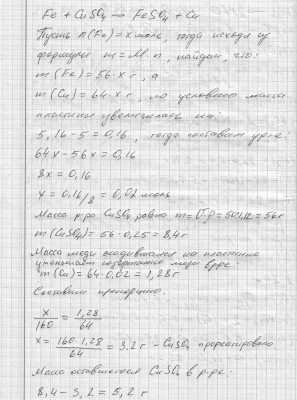 Fe + CuSO₄ → FeSO₄ + Cu
Пусть n(Fe) = x моль, тогда исходя из
формулы m = M · n, найдем, что:
m(Fe) = 56 · x г, а
m(Cu) = 64 · x г, по условию масса
пластины увеличилась на:
5,16 - 5 = 0,16, тогда составим ур-е:
64x - 56x = 0,16
8x = 0,16
x = 0,16/8 = 0,02 моль
Масса р-ра CuSO₄ равна m = V·ρ = 50·1,12 = 56 г
m(CuSO₄) = 56 · 0,15 = 8,4 г
Масса меди на пластине
уменьшает содержание меди в р-ре
m(Cu) = 64 · 0,02 = 1,28 г
Составим пропорцию:
x/160 = 1,28/64
x = 160 · 1,28/64 = 3,2 г - CuSO₄ прореагировало
Масса оставшегося CuSO₄ в р-ре:
8,4 - 3,2 = 5,2 г